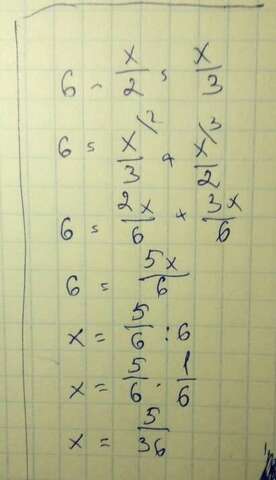 6 - x/2 = x/3
6 = x/3 /2 + x/2 /3
6 = 2x/6 + 3x/6
6 = 5x/6
x = 5/6 : 6
x = 5/6 · 1/6
x = 5/36